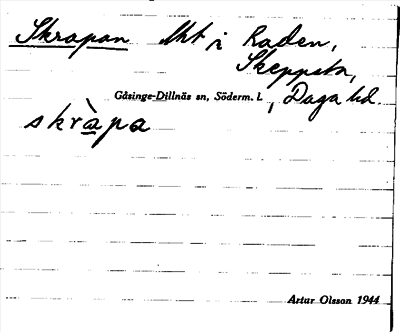 Skrapan Mt i Raden,
Skeppsta,
Gåsinge-Dillnäs sn, Söderm. l., Daga hd.
skràpa
Artur Olsson 1944